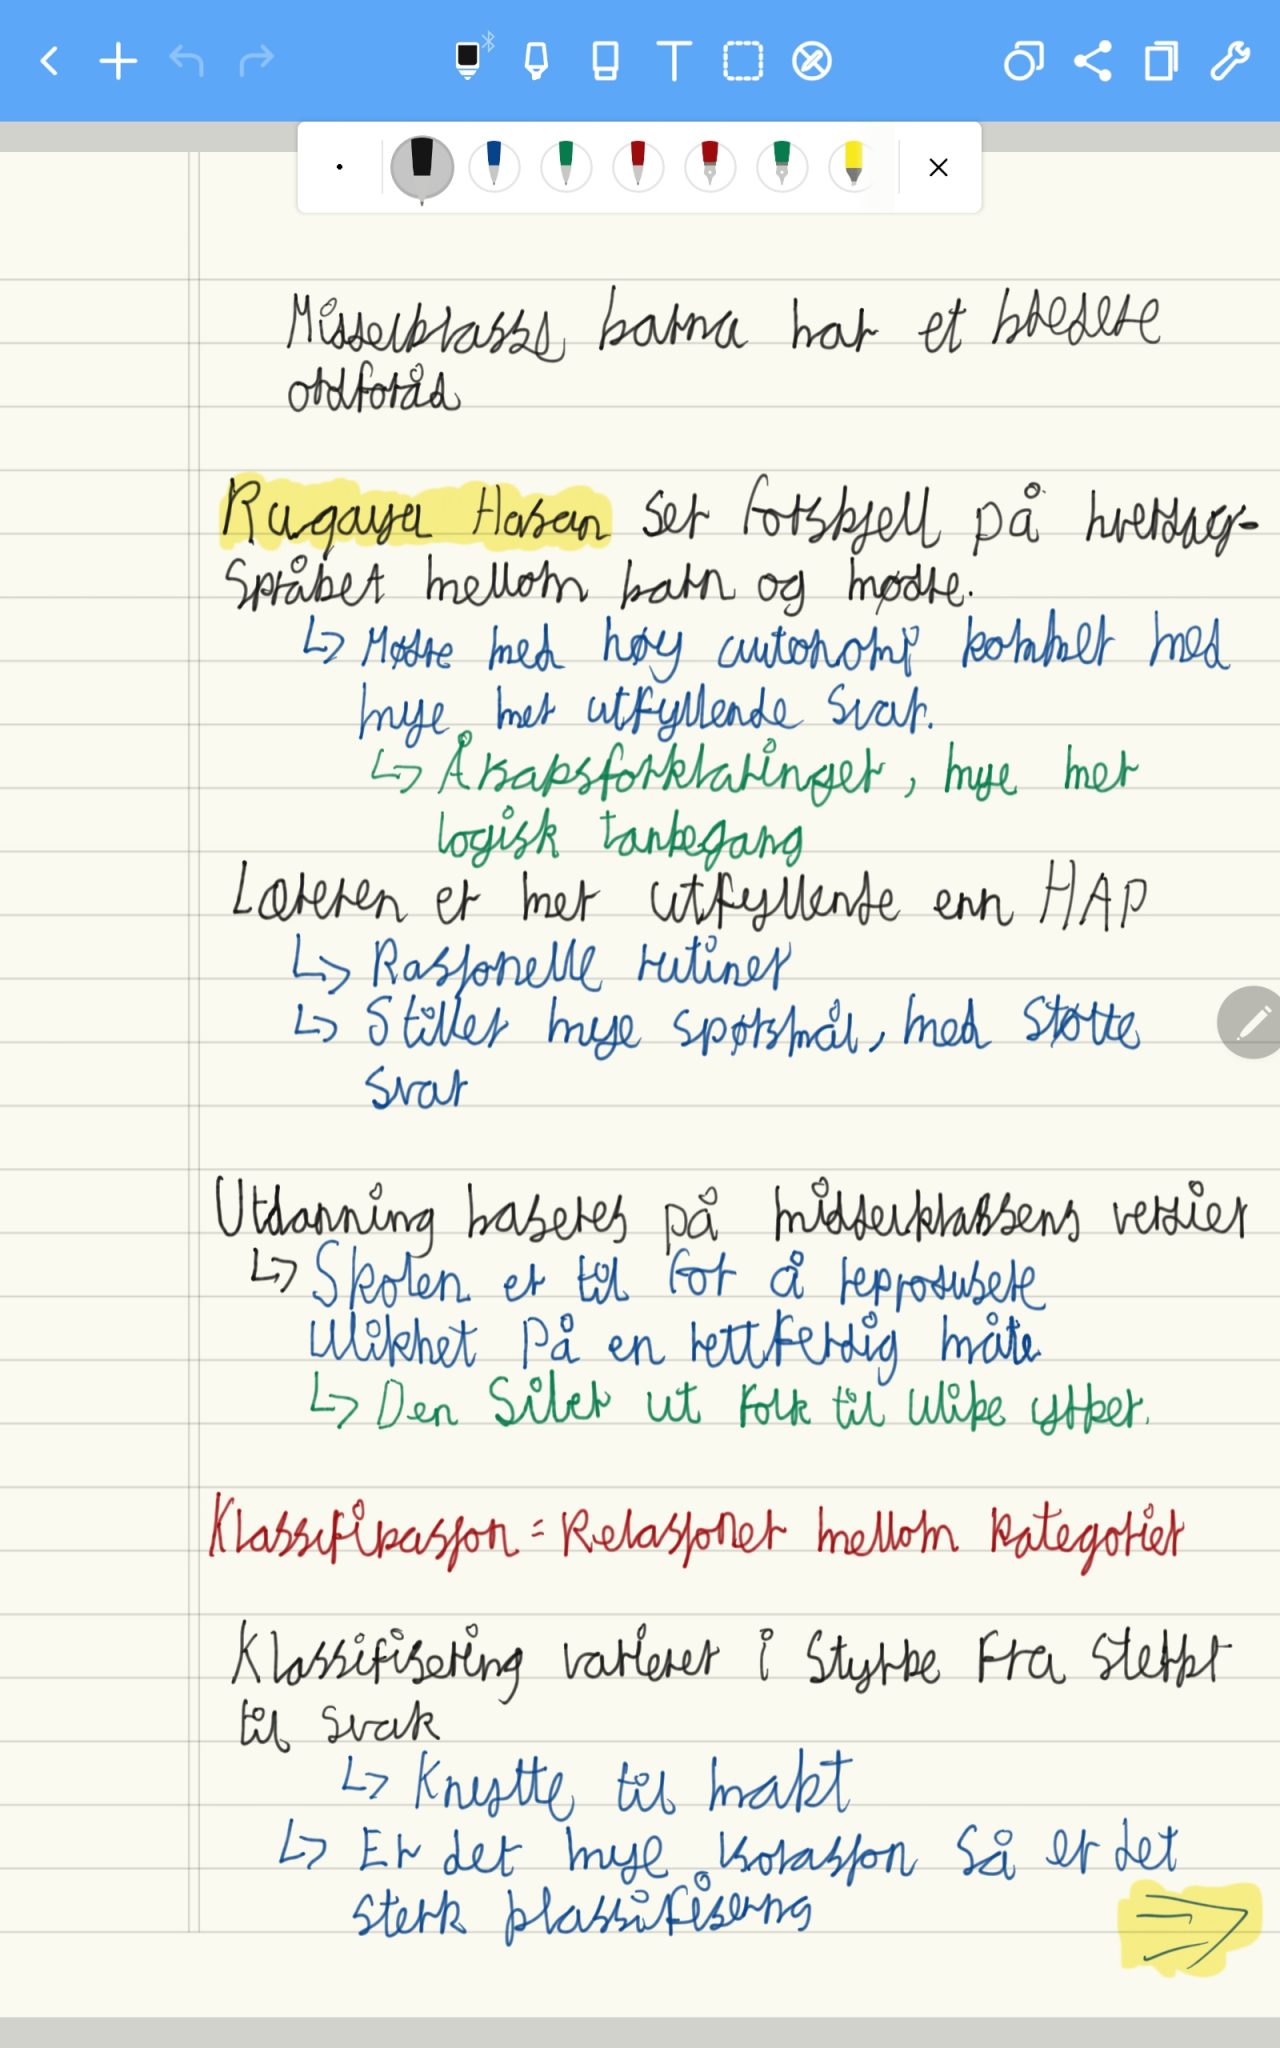 T
Middelklasse barna har et bredere
ordforåd
Ruqaya Hasan Ser forskjell på hverdag-
språket mellom barn og mødre.
↳ Mødre med høy autonomi kommer med
mye mer utfyllende svar.
↳ Åsaksforklaringer, mye mer
logisk tankegang
Læreren er mer utfyllende enn HAP
↳ Rasjonelle rutiner
↳ Stiller mye spørsmål, med støtte
svar
Utdanning baseres på middelklassens verdier
↳ Skolen er til for å reprodusere
ulikhet på en rettferdig måte
↳ Den Siler ut folk til ulike yrker.
Klassifikasjon = Relasjoner mellom kategorier
Klassifisering varierer i styrke fra sterkt
til svak
↳ Knytte til makt
↳ Er det mye isolasjon så er det
sterk klassifisering